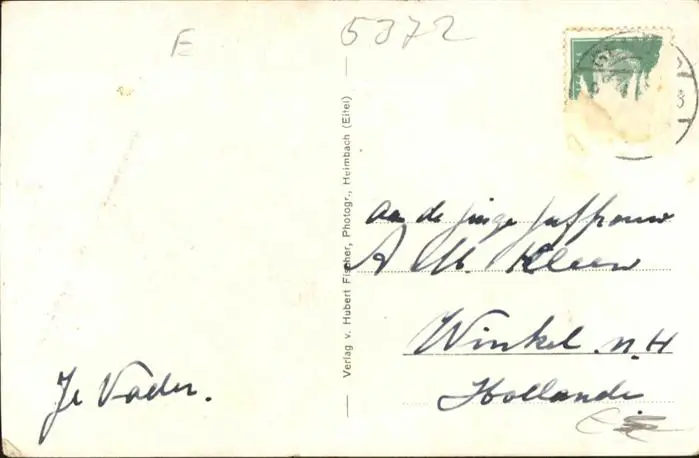 E
5372
Verlag v. Hubert Fischer, Photogr., Heimbach (Eifel)
aan de jonge juffrouw
A M. Kleen
Winkel. N. H
Hollande
Je Vader.